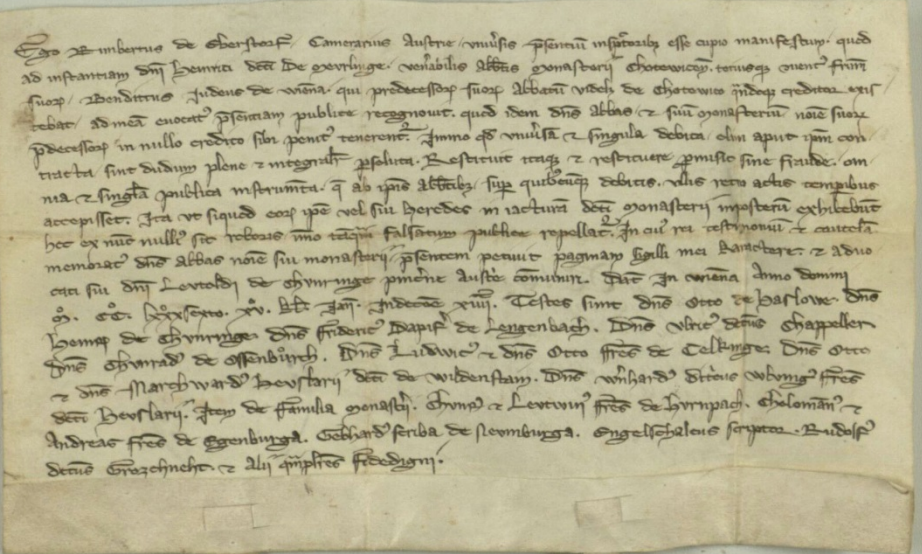 Ego Rimbertus de Eberstorf. Camerarius Austrie. univ'sis p'sentium insp'toribus esse cupio manifestum. quod
ad instantiam dni Heinrici dci De Mevrlinge. ven'abilis abb'is Monasterii Chotowicen. totiusq; vent' fr'um
suorp. Bendittus Iudeus de Wienna. qui predecessorp suorp Abbatum videl; de Chotowico q'ndoq; creditor exis
tebat. ad mea evocat' p'sentiam publice recognovit. quod idem dns abbas. & suu monasterium no'ie suorp
p'decessorp in nullo credito sibi penit' tenerent'. Immo q'd univ'sa & singula debita olim aput ip'm con
tracta sint dudum plene & integralit' p'soluta. Restituit itaq; & restituere p'misit sine fraude. om
nia & sing'la publica instrum'ta. q' ab ip'is abb'ibz sup' quibuscumq; debitis. ullis retro actis temp'ibus
accepisset. Ita ut siquod eorp ip'e vel sui heredes in iactura dci monasterii inposteru exhibebunt
hoc ex nu'c nulli' sit roboris. immo ta'q'm falsatum publice repellat'. In cui' rei testimoniu & cautela
memorat' dns abbas no'ie sui monasterii p'sentem petivit paginam sigilli mei karactere. & advo
cati sui dni Levtoldi de Chunringe pinc'ne Aust'e co'muniri. Dat' in Wienna Anno domini
M. CC. Lxxxsexto. xv. kl' Ian'. Indictione xiiii. Testes sunt dns Otto de Haslowe. dns
Heinrp de Chunringe. dns Frideric' Dapif' de Lengenbach. Dns Ulric' dictus Chappeller
Dns Chunrad' de Ossenburch. Dns Ludwic' & dns Otto fr'es de Celkinge. Dns Otto
& dns Marchward' Hevslarii dci de Wildenstain. Dns W'nhard' dictus Wlving' fr'es
dci Hevslarii. Item de Familia monast'ii. Chunr' & Levtwin' fr'es de Hurnpach. Choloman' &
Andreas fr'es de Egenburga. Gebhard' scriba de Neunburga. Engelschalcus scriptor. Rudolf'
dictus Grozchneht. & Alii q'mpl'es Fidedigni.